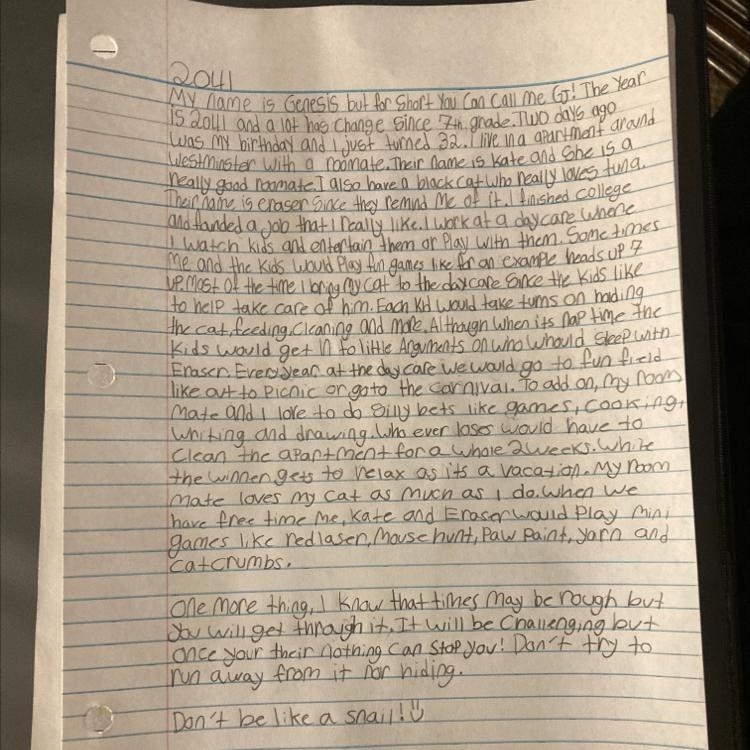 2041
My name is Genesis but for Short You Can Call Me G! The Year
is 2041 and a lot has Change Since 7th grade. TWO days ago
was my birthday and I just turned 32. I live in a apartment around
Westminster with a roomate. Their name is Kate and She is a
really good roomate. I also have a black cat who really loves tuna.
Their name is eraser Since they remind Me of it. I finished college
and landed a job that I really like. I work at a daycare where
I watch kids and entertain them or Play with them. Sometimes
Me and the kids would Play fun games like for an example heads UP 7
UP. Most of the time I bring my cat to the daycare Since the kids like
to help take care of him. Each Kid would take turns on holding
the cat, feeding, cleaning and more. Although when its nap time the
Kids would get in to little Arguments on who whould Sleep with
Eraser. Every year at the day care we would go to fun field
like out to Picnic or go to the carnival. To add on, my room
mate and I love to do Silly bets like games, cooking,
writing and drawing. Who ever loses would have to
Clean the apartment for a whole 2 weeks. While
the winner gets to relax as its a vacation. My room
mate loves my cat as much as I do. When we
have free time Me, Kate and Eraser would Play mini
games like red laser, Mouse hunt, Paw Paint, yarn and
cat crumbs.
One more thing, I know that times may be rough but
You will get through it. It will be Challenging but
once your their nothing can Stop you! Don't try to
run away from it nor hiding.
Don't be like a snail!